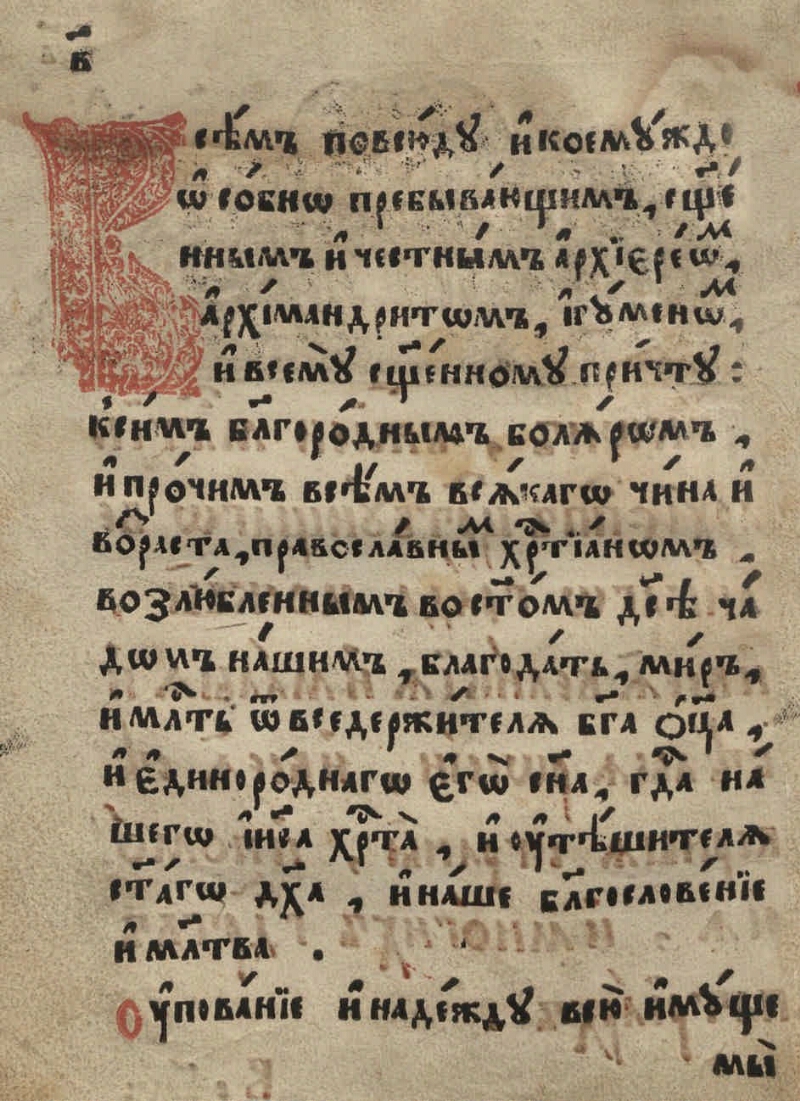 в҃
Всѣ́мъ повсю́дꙋ и҆ коемꙋ́ждо
ѡ҆со́бнѡ пребыва́ющимъ, сщ҃е́
ннымъ и҆ че́стны́мъ а҆рхїе҆ре́ѡⷨ,
а҆рхїма́ндритѡмъ, і҆гꙋ́менѡⷨ,
и҆ всемꙋ̀ сщ҃е́нномꙋ при́чтꙋ :
ксн҃и́мъ бл҃горо́днымъ боля́рѡмъ ,
и҆ про́чимъ всѣ́мъ вся́кагѡ чи́на и҆
во́зраста, правосла́вныⷨ хрⷭ҇тїа́нѡмъ .
возлю́бленнымъ во ст҃о́мъ дс҃ѣ ча́
дѡмъ на́шимъ , благода́ть, ми́ръ,
и҆ млⷭ҇ть ѿ вседержи́теля бг҃а ѻ҆ц҃а̀ ,
и҆ є҆диноро́днагѡ є҆гѡ̀ сн҃а, гдⷭ҇а на́
шегѡ і҆и҃са хрⷭ҇та̀ , и҆ ѹ҆тѣ́шителя
ст҃а́гѡ дх҃а , и҆ на́ше бл҃гослове́нїе
и҆ мл҃тва .
Оу҆пова́нїе и҆ наде́ждꙋ всю̀ и҆мꙋ́ще
мы̀